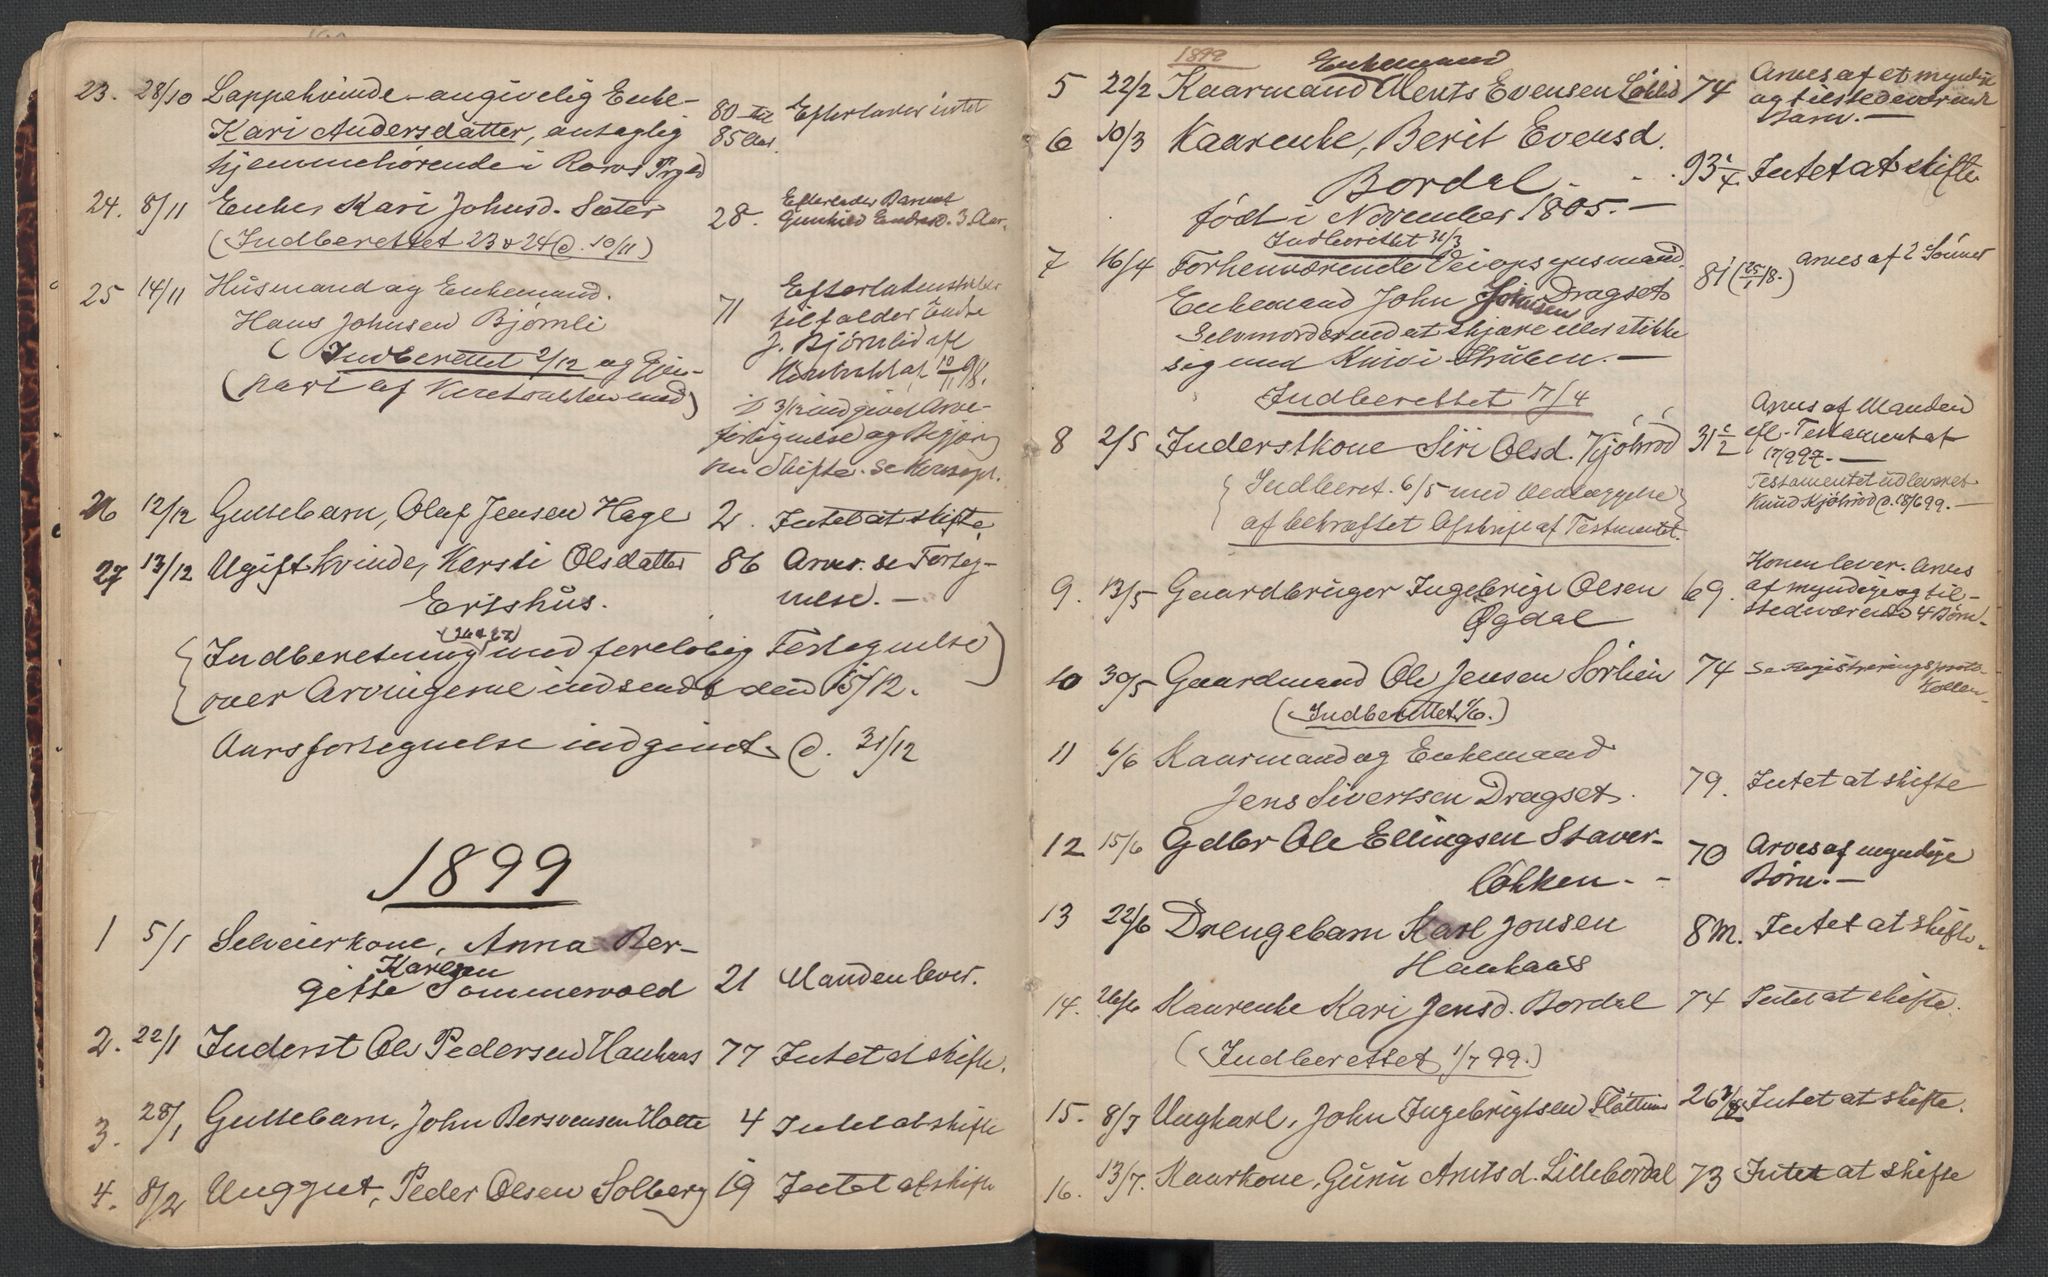 23. 28/10 Lappekvinde - angivelig Enke-
Kari Andersdatter, antagelig
hjemmehørende i Roros Prgld
80 til 85 Aar. Efterlader intet
24. 8/11 Enke, Kari Johnsd. Sæter 28.
Efterlader Barnet
Gunhild Endresd. 3 Aar.
(Indberettet 23 & 24 d. 10/11)
25 14/11 Husmand og Enkemand.
Hans Johnsen Bjørnli 71
(Indberettet 2/12 og Gjen-
part af Kontrakten med)
Efterladenskaber
tilfalder Endre
J. Bjørnli efl
Kontrakt af 12/1 98.
3/12 indgivet Arve-
fortegnelse og Begjæring
om Skifte. Se Konsept.
26 12/12 Guttebarn, Olaf Jensen Hage 2. Intet at skifte
27 13/12 Ugift kvinde, Kersti Olsdatter
Eritshus.
86 Arver. se Forteg-
nelse. —
Indberetning (26 & 27) med foreløbig Fortegnelse
over Arvingerne indsendt den 15/12.
Aarsfortegnelse indgivet d. 31/12
1899
1 5/1 Selveierkone, Anna Ber-
gitte Karlsen Sommervold 21 Manden lever.
2. 22/1 Inderst Ole Pedersen Haukaas 77 Intet at skifte.
3. 28/1 Guttebarn, John Bersvensen Holte 4 Intet at skifte
4. 8/2 Unggut, Peder Olsen Solberg 19 Intet at skifte
1899
Enkemand
5 22/2 Kaarmand Ments Evensen 74
Arves af et myndigt
og tilstedeværende
Barn. —
6 10/3 Kaarenke, Berit Evensd.
Bordal 93 1/4. Intet at skifte
født i November 1805. —
Indberettet 11/3
7 16/4 Forhenværende Veiopsynsmand,
Enkemand John Johnsen Dragset 81 (25/1 18.) Arves af 2 Sønner
Selvmord ved at skjære eller stikke
sig med Kniv i Struben. —
Indberettet 17/4
8 2/5 Inderstkone Siri Olsd. Kjølnød 31 1/2
Arves af Manden
efl. Testament af
17/9 97. —
Indberet. 6/5 med Vedlæggelse
af bekræftet Afskrift af Testmentet.
Testamentet udleveret
Knud Kjølnød d. 18/6 99. —
9. 13/5 Gaardbruger Ingebrigt Olsen
Øgdal 69.
Konen lever. Arves
af myndige og til-
stedeværende 4 Børn. -
10 30/5 Gaardmand Ole Jensen Sørlien 74 Se Registreringsproto-
kollen.
(Indberettet 1/6.)
11 6/6 Kaarmand og Enkemand
Jens Sivertsen Dragset. 79. Intet at skifte
12 15/6 Gdbr Ole Ellingsen Staver-
løkken. - - 70
Arves af myndige
Børn. —
13 22/6 Drengebarn Karl Jonsen
Haukaas 8 M. Intet at skifte.
14. 26/6 Kaarenke Kari Jensd. Bordal 74 Intet at skifte.
(Indberettet 1/7 99.)
15. 8/7 Ungkarl, John Ingebrigtsen Flottum 26 Intet at skifte.
16. 13/7. Kaarkone, Guru Arntsd. Lillebordal 73 Intet at skifte